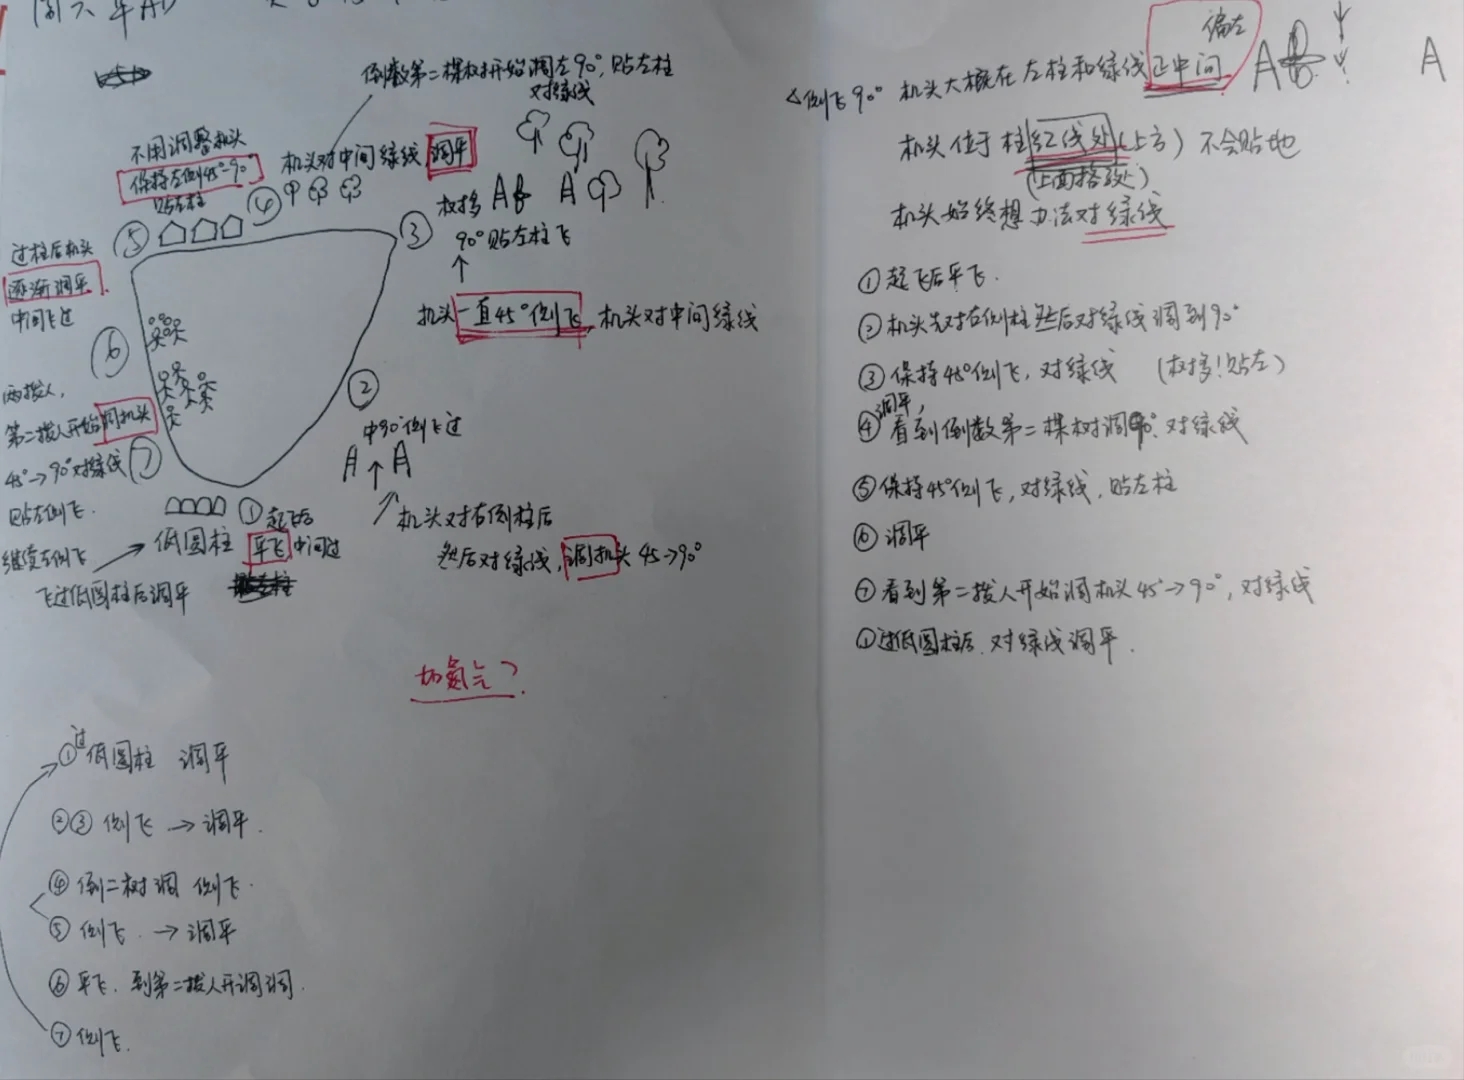 倒数第二棵树开始调左90°,贴左柱
对绿线
不用调整机头
保持左侧45°-90°
贴左柱
机头对中间绿线 调平
④
③
⑤
权杨
90°贴左柱飞
机头一直45°侧飞,机头对中间绿线
过柱后机头
逐渐调平
中间飞过
⑥
两拨人,
第二拨人开始调机头
45°→90°对绿线
贴左侧飞.
继续左侧飞
飞过低圆柱后调平
⑦
②
中90°侧飞过
机头对右侧柱后
然后对绿线,调机头 45→90°
低圆柱
①起飞后
平飞 中间过
加氮气?
①过低圆柱 调平
②③ 侧飞 → 调平.
④ 倒二树调 侧飞.
⑤ 侧飞. → 调平
⑥ 平飞. 到第二拨人开调调.
⑦ 侧飞.
偏左
侧飞90° 机头大概在左柱和绿线正中间
机头位于柱红线处(上方)不会贴地
(上面搭致处)
机头始终想办法对绿线
①起飞后平飞.
②机头先对右侧柱然后对绿线调到90°
③保持45°侧飞,对绿线 (权杨!贴左)
④调平,看到倒数第二棵树调90°.对绿线
⑤保持45°侧飞,对绿线,贴左柱
⑥调平
⑦看到第二拨人开始调机头45°→90°,对绿线
①过低圆柱后.对绿线调平.